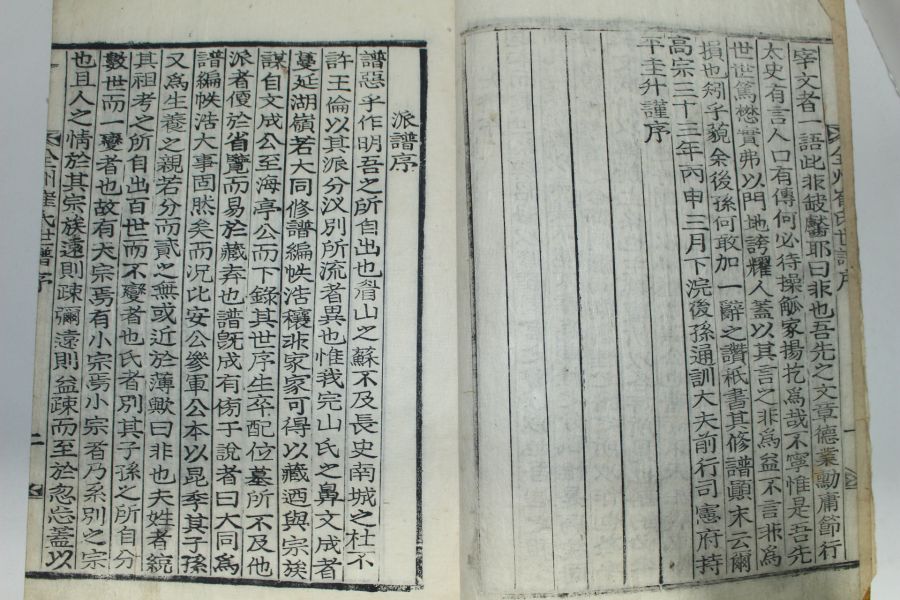 宰文者一語此非皷鬱耶曰非也吾先之文章德業勳庸節行
太史有言人口有傳何必待操觚家揚扢爲哉不寧惟是吾先
世世篤懋實弗以門地誇耀人蓋以其言之非爲益不言非爲
損也矧乎藐余後孫何敢加一辭之讚秪書其修譜顚末云爾
高宗三十三年丙申三月下浣後孫通訓大夫前行司憲府持
平圭升謹序
派譜序
譜惡乎作明吾之所自出也眉山之蘇不及長史南城之杜不
許王倫以其派分汊別所流者異也惟我完山氏之鼻文成者
蔓延湖嶺若大同修譜編帙浩穰非家家可得以藏迺與宗族
謀自文成公至海亭公而下錄其世序生卒配位墓所不及他
派者便於省覽而易於藏弆也譜旣成有傍于說者曰大同爲
譜編帙浩大事固然矣而况比安公參軍公本以昆季其子孫
又爲生養之親若分而貳之無或近於薄歟曰非也夫姓者統
其祖考之所自出百世而不變者也氏者別其子孫之所自分
數世而一變者也故有大宗焉有小宗焉小宗者乃系別之宗
也且人之情於其宗族遠則疎彌遠則益疎而至於忽忘蓋以
全州崔氏世譜序
二